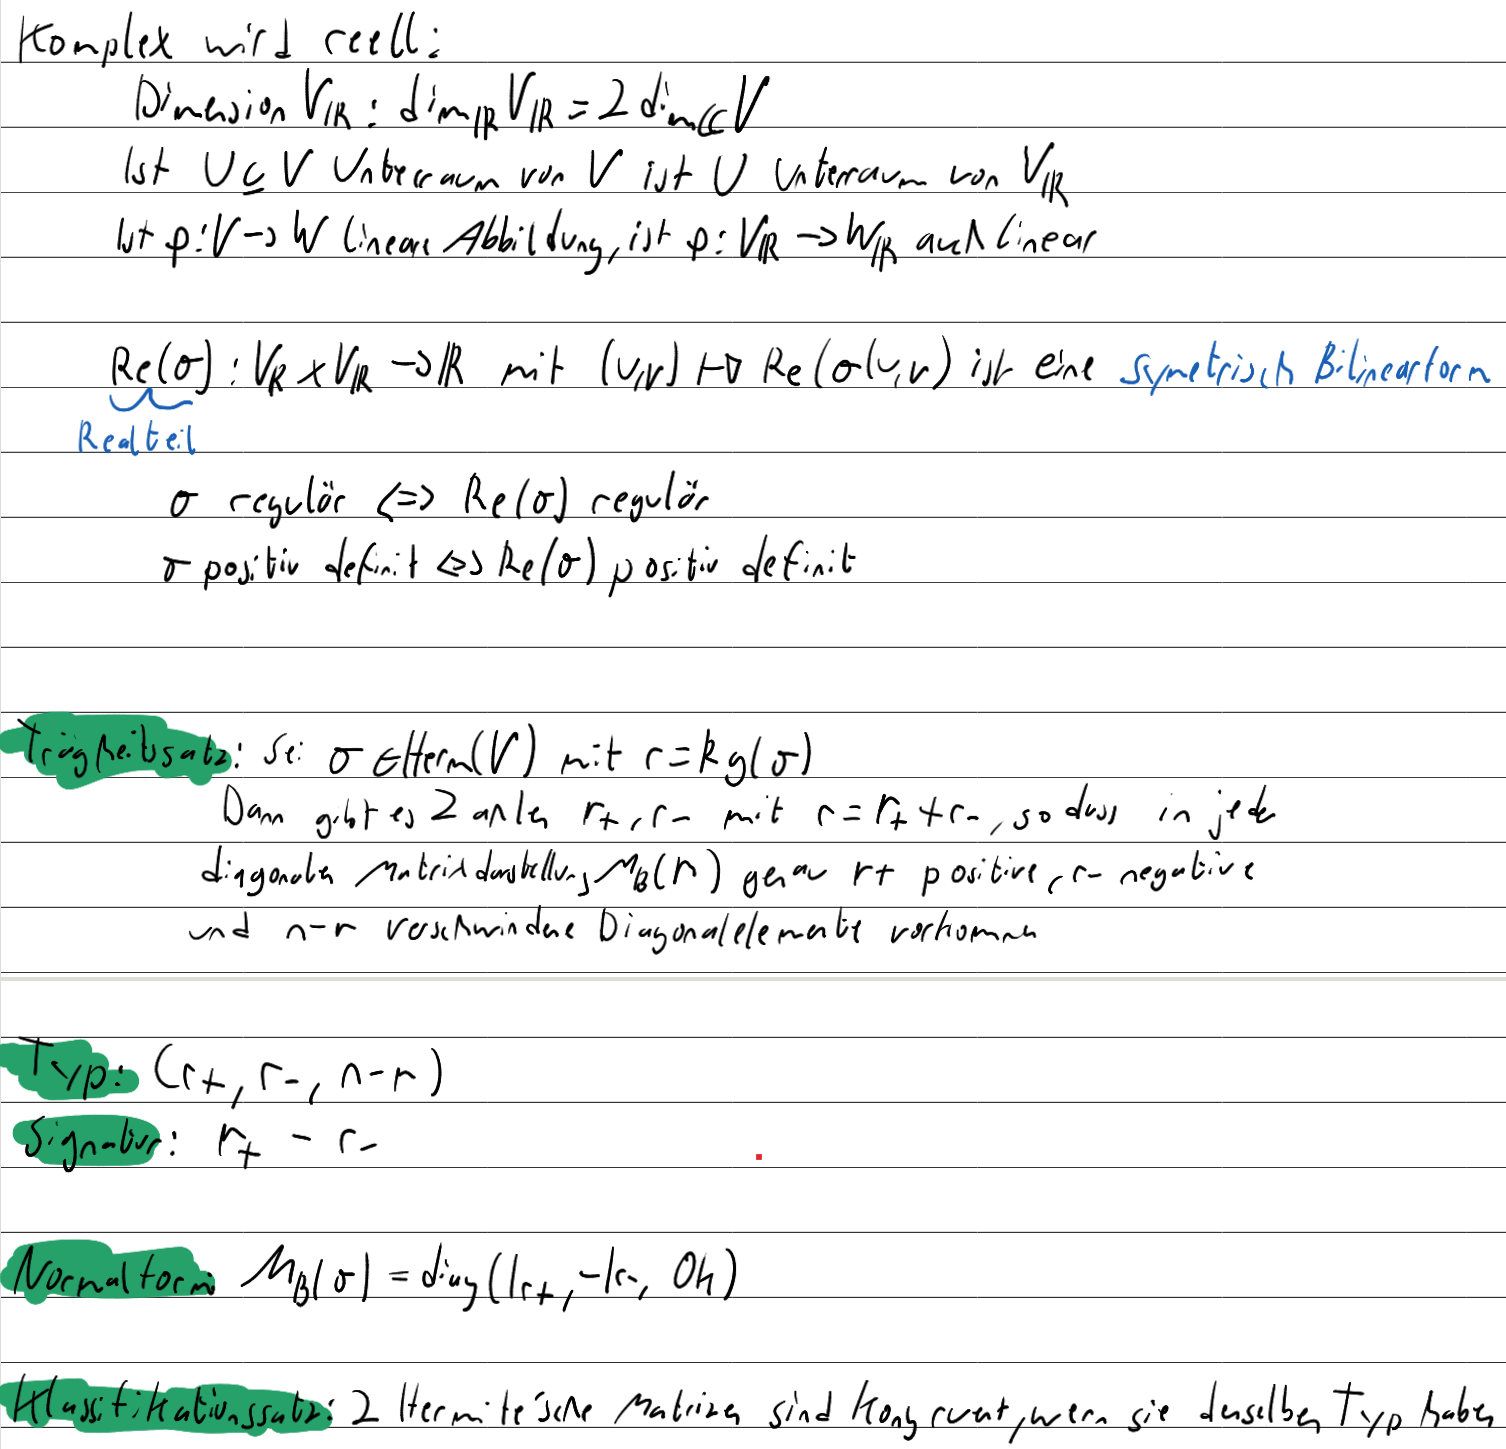 Komplex wird reell:
Dimension V_ℝ : dim_ℝ V_ℝ = 2 dim_ℂ V
Ist U ⊆ V Unterraum von V ist U Unterraum von V_ℝ
Ist φ: V → W lineare Abbildung, ist φ: V_ℝ → W_ℝ auch linear
Re(σ) : V_ℝ × V_ℝ → ℝ mit (v,v) ↦ Re(σ(v,v) ist eine symetrisch Bilinearform
Realteil
σ regulär <=> Re(σ) regulär
σ positiv definit <=> Re(σ) positiv definit
Trägheitssatz: Sei σ ∈ Herm(V) mit r = Rg(σ)
Dann gibt es 2 r+, r- mit r = r+ + r-, so dass in jeder
diagonalen Matrixdarstellung M_B(h) genau r+ positive, r- negative
und n-r verschwindene Diagonalelemente vorkommen
Typ: (r+, r-, n-r)
Signatur: r+ - r-
Normalform: M_B(σ) = diag(1r+, -1r-, 0k)
Klassifikationssatz: 2 Hermite'sche Matrizen sind Kongruent, wenn sie denselben Typ haben